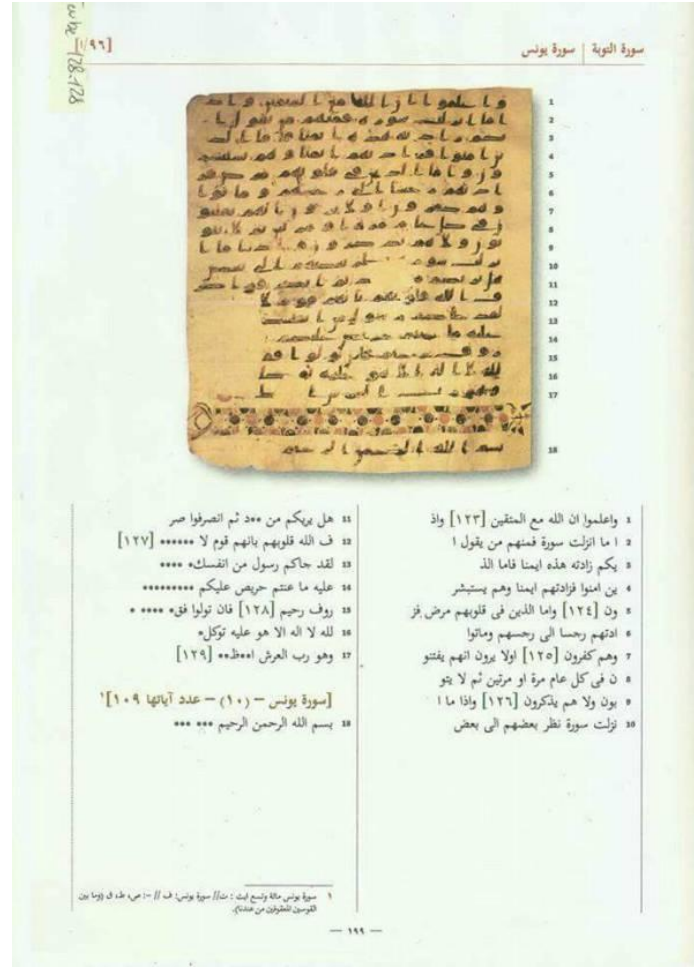 Tawbe-128-128
[١/٩٦]
سورة التوبة | سورة يونس
1 واعلموا ان الله مع المتقين [١٢٣] واذ
2 ا ما انزلت سورة فمنهم من يقول ا
3 يكم زادته هذه ايمنا فاما الذ
4 ين امنوا فزادتهم ايمنا وهم يستبشر
5 ون [١٢٤] واما الذين فى قلوبهم مرض فز
6 ادتهم رجسا الى رجسهم وماتوا
7 وهم كفرون [١٢٥] اولا يرون انهم يفتنو
8 ن فى كل عام مرة او مرتين ثم لا يتو
9 بون ولا هم يذكرون [١٢٦] واذا ما ا
10 نزلت سورة نظر بعضهم الى بعض
11 هل يريكم من **د ثم انصرفوا صر
12 ف الله قلوبهم بانهم قوم لا ****** [١٢٧]
13 لقد جاكم رسول من انفسك* ****
14 عليه ما عنتم حريص عليكم *********
15 روف رحيم [١٢٨] فان تولوا فق* **** *
16 لله لا اله الا هو عليه توكل*
17 وهو رب العرش ا**ظ** [١٢٩]
[سورة يونس – (١٠) – عدد آياتها ١٠٩]¹
18 بسم الله الرحمن الرحيم *** ***
١ سورة يونس مائة وتسع ايت : ت// سورة يونس: ف // –: ص، ط، ق (وما بين
القوسين المعقوفين من عندنا).
— ١٩٩ —